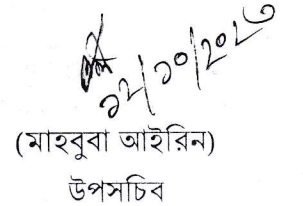 ১২/১০/২০২৩
(মাহবুবা আইরিন)
উপসচিব